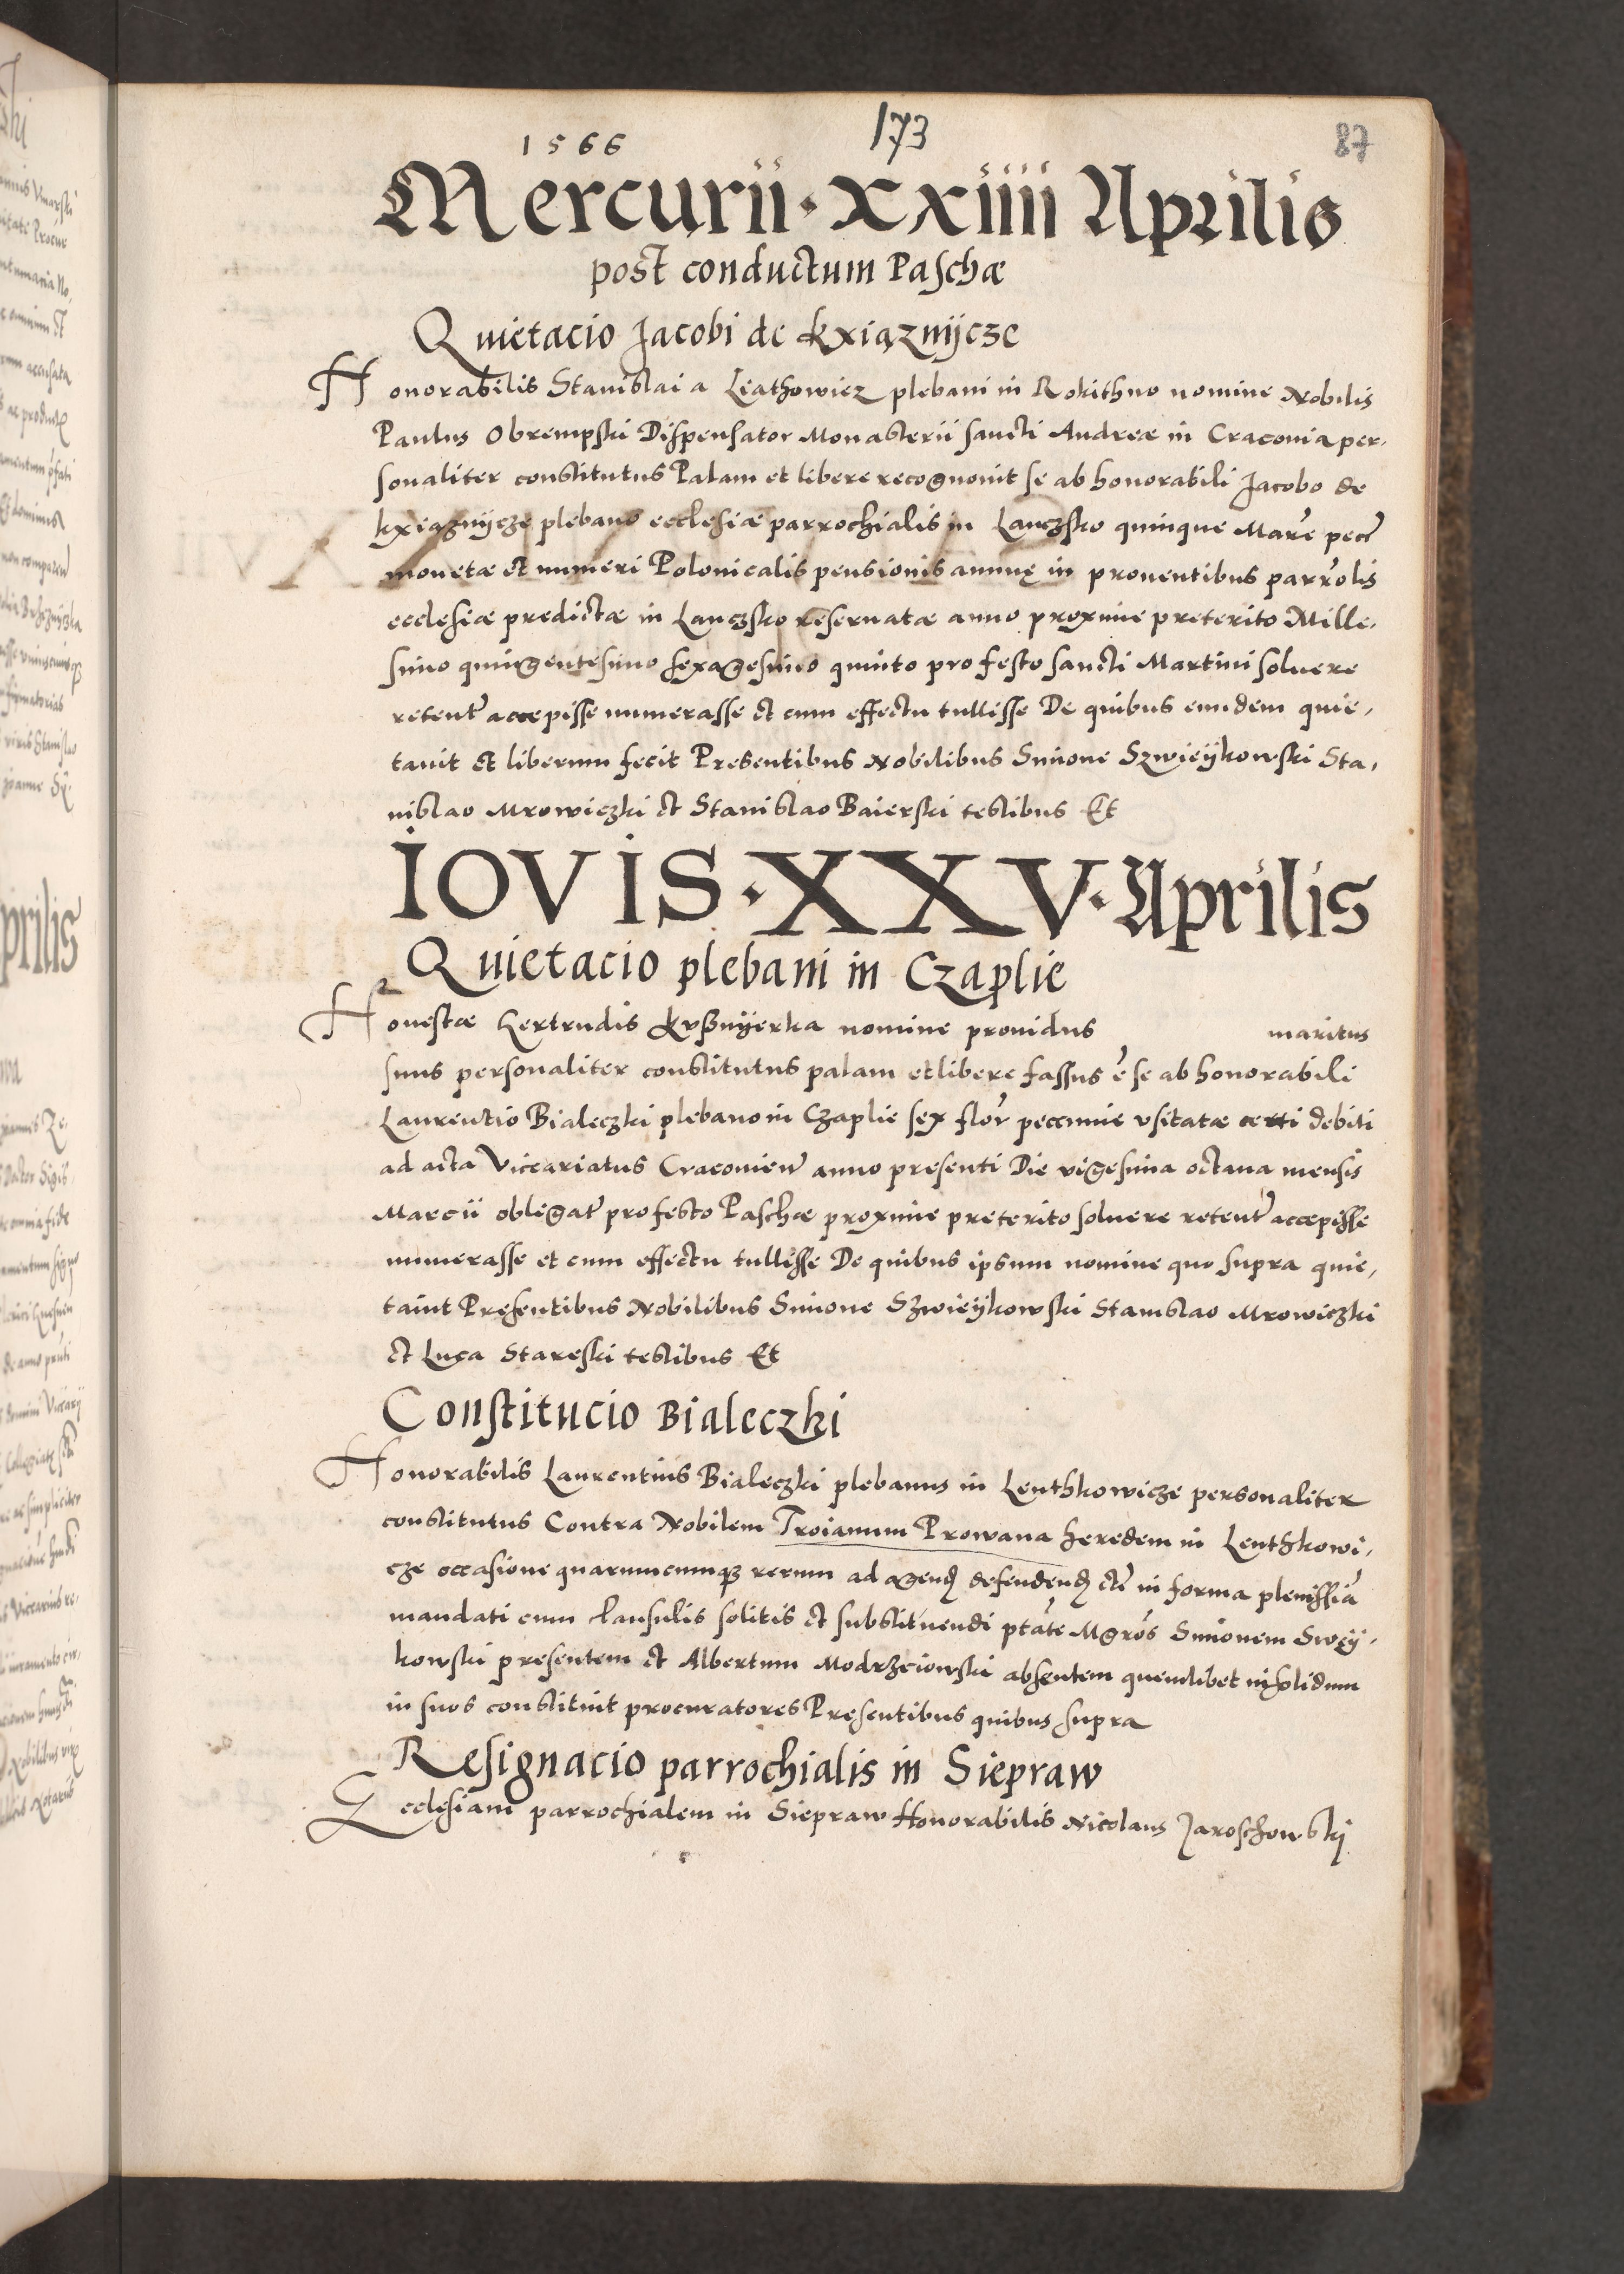 1566
173
87
Mercurii · xxiiii Aprilis
post conductum Paschæ
Quietacio Jacobi de Kxiąznijcze
Honorabilis Stanislai a Liathowicz plebani in Rokithno nomine Nobilis
Paulus Obrempski Dispensator Monasterii sancti Andreæ in Craconia per,
sonaliter constitutus Palam et libere recognouit se ab honorabili Jacobo de
kxiąznijcze plebano ecclesiæ parrochialis in Lanczsko quinque Marc̃ pecc̃
monetæ et numeri Polonicalis pensionis annuę in prouentibus parrõlis
ecclesiæ predictæ in Lanczsko reseruatæ anno proxime preterito Mille,
simo quingentesimo sexagesimo quinto pro festo sancti Martini soluere
retent̃ accepisse numerasse et cum effectu tullisse De quibus eundem quie,
tauit et liberum fecit Presentibus Nobilibus Simone Szwieijkowski Sta,
nislao Mrowiczki et Stanislao Baierski testibus Et
IOVIS · XXV · Aprilis
Quietacio plebani in Czaplie
Honestæ Gertrudis Kvßnijerka nomine prouidus maritus
suus personaliter constitutus palam et libere fassus ẽ se ab honorabili
Laurentio Bialeczki plebano in Czaplie sex flor̃ peccunie vsitatæ certi debiti
ad acta Viccariatus Cracouien̄ anno presenti Die vigesima octaua mensis
Marcii obligat̃ pro festo Paschæ proxime preterito soluere retent̃ accepisse
numerasse et cum effectu tullisse De quibus ipsum nomine quo supra quie,
tauit Pręsentibus Nobilibus Simone Szwieijkowski Stanislao Mrowiczki
et Luca Stareski testibus Et
Constitucio Bialeczki
Honorabilis Laurentius Bialeczki plebanus in Lenthkowicze personaliter
constitutus Contra Nobilem Troianum Prowana heredem in Lenthkowi,
cze occasione quarumcumqȝ rerum ad agend̨ defendend̨ etc̃ in forma plenissiã
mandati cum clausulis solitis et substituendi ptãte Mgrõs Simonem Swęij,
kowski presentem et Albertum Modrzeiowski absentem quemlibet in solidum
in suos constituit procuratores Presentibus quibus supra
Resignacio parrochialis in Siepraw
Ecclesiam parrochialem in Siepraw Honorabilis Nicolaus Jaroschowskij